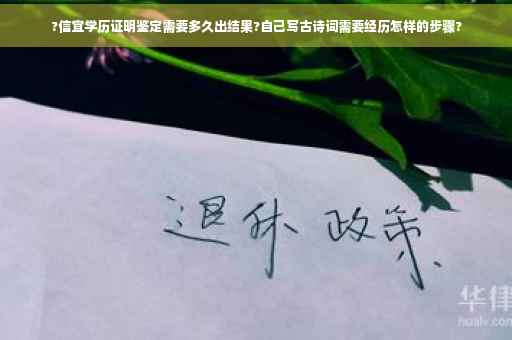 ?信宜学历证明鉴定需要多久出结果?自己写古诗词需要经历怎样的步骤?
退休 政策
华律
hualv.com